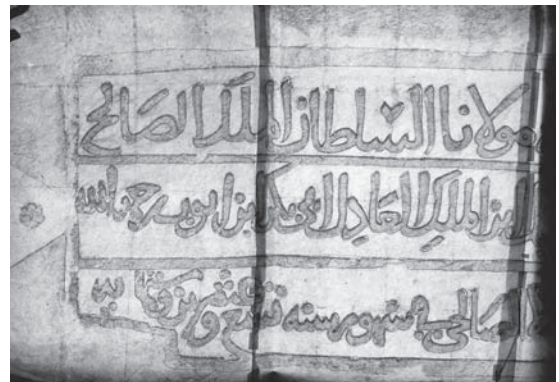 مولانا السلطان الملك الصالح
ابن الملك العادل ابي بكر بن ايوب رحمه الله
الصالحي في شهور سنه تسع